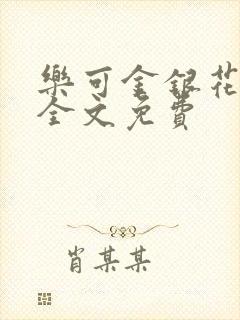 樂可金銀花
全文免費
肖某某